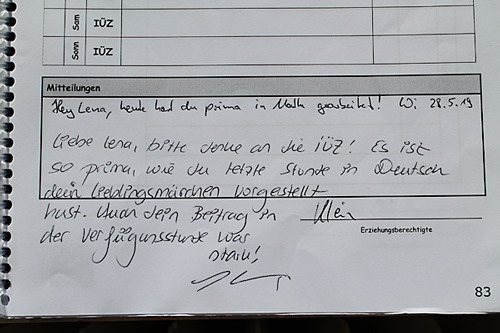 Sam IÜZ
Sonn IÜZ
Mitteilungen
Hey Lena, heute hast du prima in Mathe gearbeitet! Wi 28.5.19
Liebe Lena, bitte denke an die IÜZ! Es ist
so prima, wie du letzte Stunde in Deutsch
dein Lieblingsmärchen vorgestellt
hast. Auch dein Beitrag in Klein
der Verfügungsstunde war
stark!
Erziehungsberechtigte
83